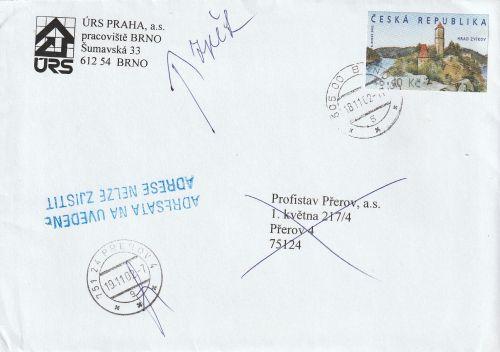 ÚRS PRAHA, a.s.
pracoviště BRNO
Šumavská 33
612 54 BRNO
ÚRS
zpět
ČESKÁ REPUBLIKA
HRAD ZVÍKOV
605 00 B
18.11.02-
ADRESÁTA NA UVEDENÉ
ADRESE NELZE ZJISTIT
Profistav Přerov, a.s.
1. května 217/4
Přerov 4
75124
751 24 PŘEROV 4
19.11.02-7